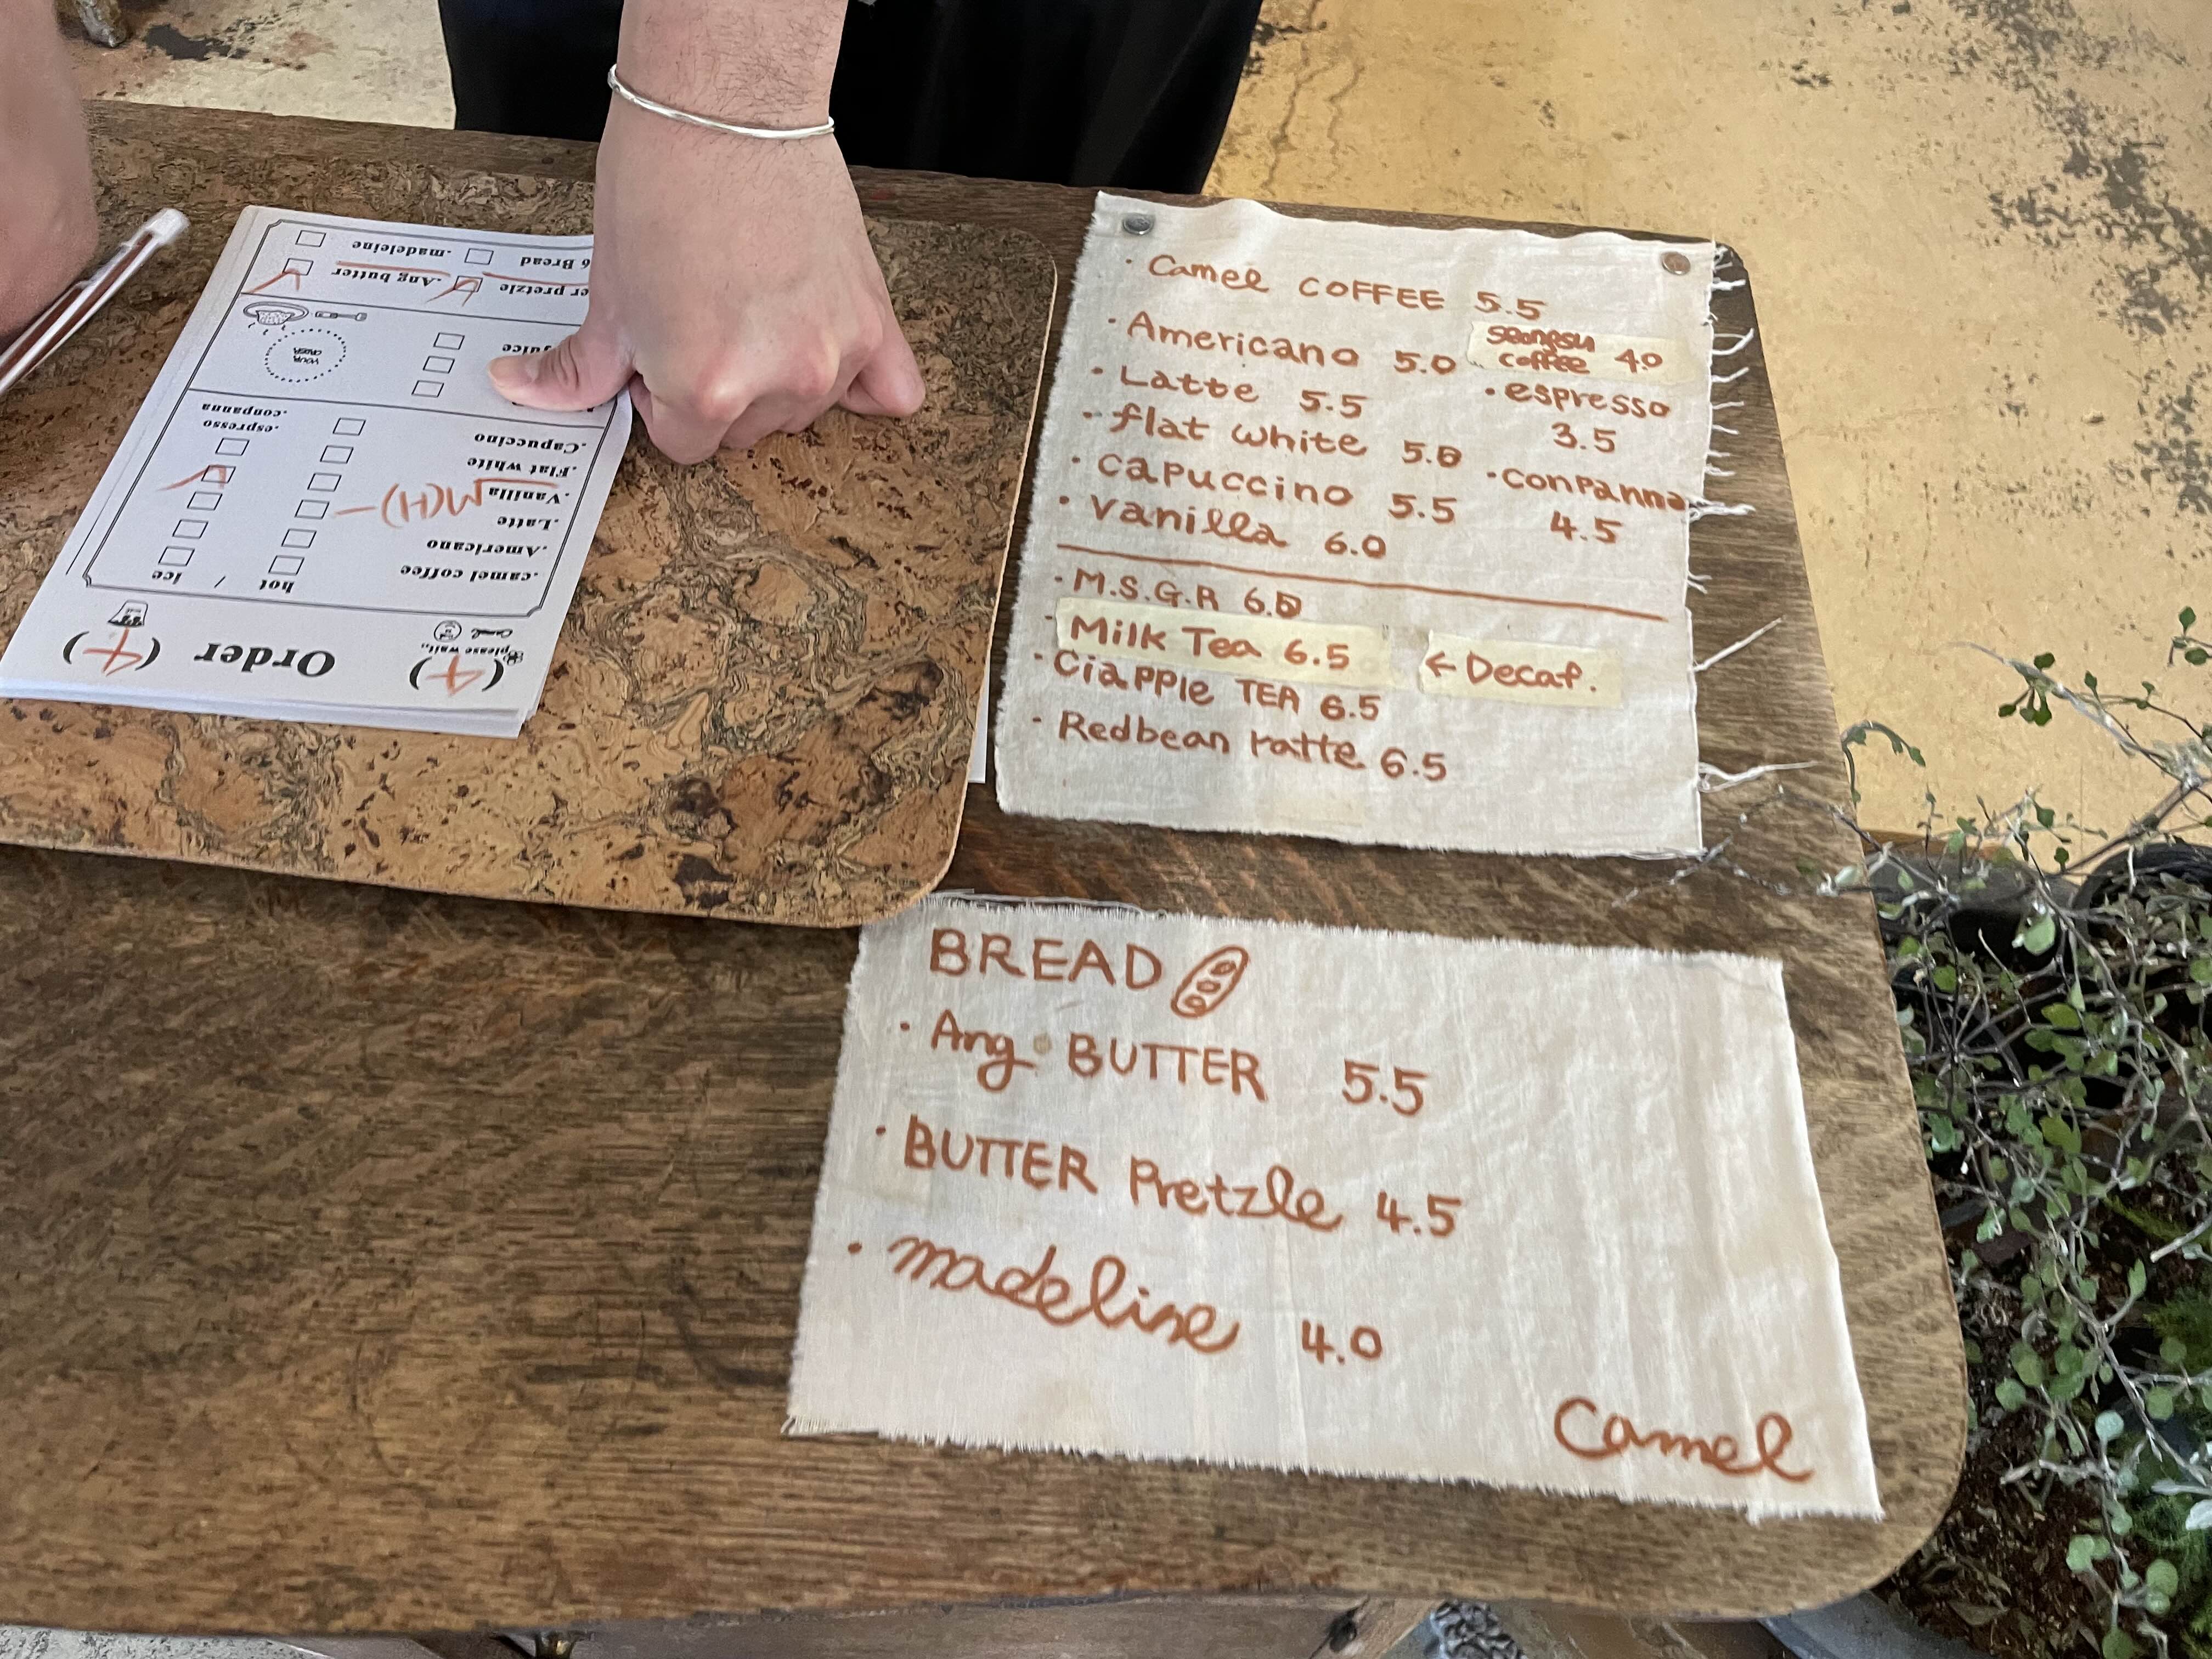 (4) Order (4)
please wait..
Camel
hot / ice
.camel coffee
.Americano
.Latte
.Vanilla
M(H)
.Flat white
.Capuccino
.espresso
.conpanna
juice
YOUR
ORDER
er pretzle
.Ang butter
Bread
.madeleine
· Camel COFFEE 5.5
· Americano 5.0
seongsu
coffee 4.0
· Latte 5.5
· espresso
3.5
· flat white 5.0
· capuccino 5.5
· conpanna
4.5
· vanilla 6.0
· M.S.G.R 6.0
· Milk Tea 6.5
← Decaf.
· Ciapple TEA 6.5
· Redbean ratte 6.5
BREAD
· Ang · BUTTER 5.5
· BUTTER Pretzle 4.5
· madeline 4.0
Camel